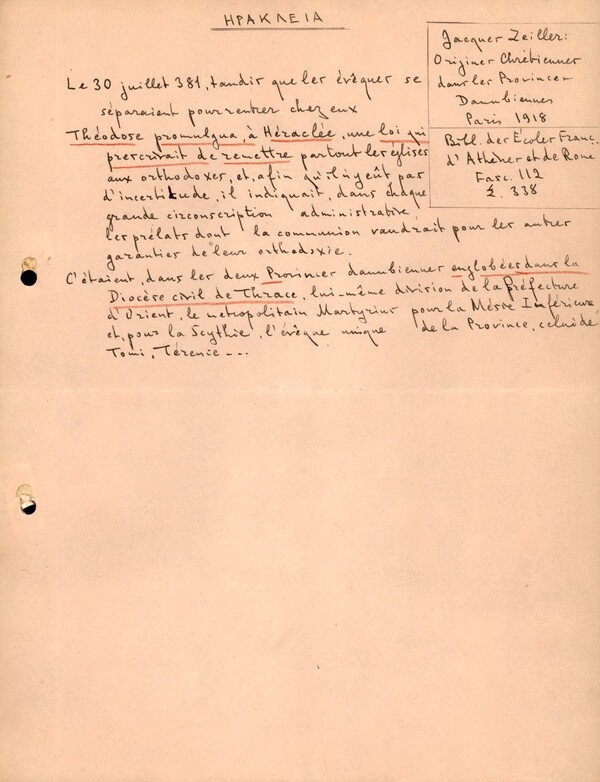 ΗΡΑΚΛΕΙΑ
Jacques Zeiller:
Origines Chrétiennes
dans les Provinces
Danubiennes
Paris 1918
Bibl. des Écoles Franç.
d'Athènes et de Rome
Fasc. 112
Σ. 338
Le 30 juillet 381, tandis que les évêques se
séparaient pour rentrer chez eux
Théodose promulgua, à Héraclée, une loi qui
prescrivait de remettre partout les églises
aux orthodoxes, et, afin qu'il n'y eût pas
d'incertitude, il indiquait, dans chaque
grande circonscription administrative,
les prélats dont la communion vaudrait pour les autres
garanties de leur orthodoxie.
C'étaient, dans les deux Provinces danubiennes englobées dans la
Diocèse civil de Thrace, lui-même division de la préfecture
d'Orient, le métropolitain Martyrius pour la Mésie Inférieure
et, pour la Scythie, l'évêque unique de la Province, celui de
Tomi, Térence ---